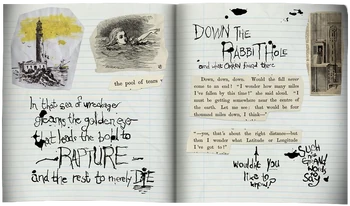 the pool of tears
In that sea of wreckage
gleams the golden eye
that leads the bold to
RAPTURE
and the rest to merely DIE
DOWN THE
RABBIT HOLE
and what found there
Down, down, down. Would the fall never
come to an end? "I wonder how many miles
I've fallen by this time?" she said aloud. "I
must be getting somewhere near the centre of the
earth. Let me see: that would be four
thousand miles down, I think—"
"—yes, that's about the right distance—but
then I wonder what Latitude or Longitude
I've got to?"
wouldn't you
like to
know?
Such
GRAND
words to
say